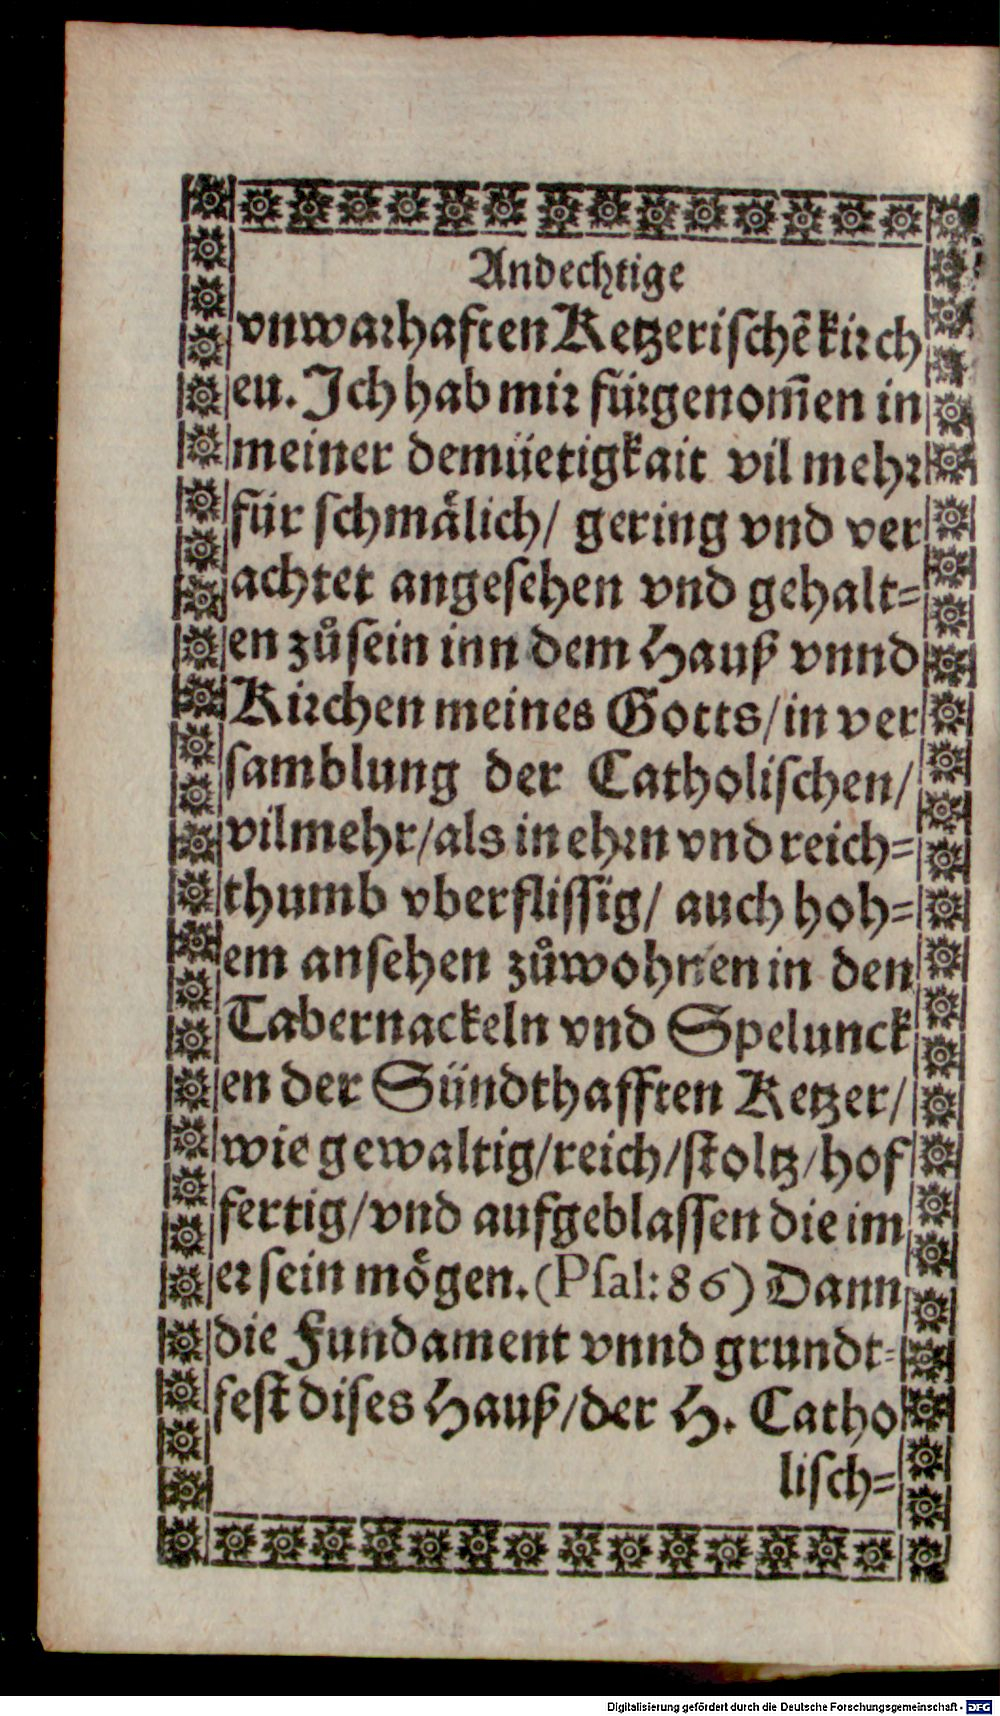 Andechtige
vnwarhaften Ketzerischē kirch
eu. Ich hab mir fürgenom̄en in
meiner demüetigkait vil mehr
für schmålich/ gering vnd ver
achtet angesehen vnd gehalt=
en zůsein inn dem Hauß vnnd
Kirchen meines Gotts/in ver
samblung der Catholischen/
vilmehr/als in ehrn vnd reich=
thumb vberflissig/ auch hoh=
em ansehen zůwohnen in den
Tabernackeln vnd Spelunck
en der Sündthafften Ketzer/
wie gewaltig/reich/stoltz/hof
fertig/vnd aufgeblassen die im
er sein mögen. (Psal: 86) Dann
die Fundament vnnd grundt=
fest dises Hauß/der H. Catho
lisch=
Digitalisierung gefördert durch die Deutsche Forschungsgemeinschaft - DFG